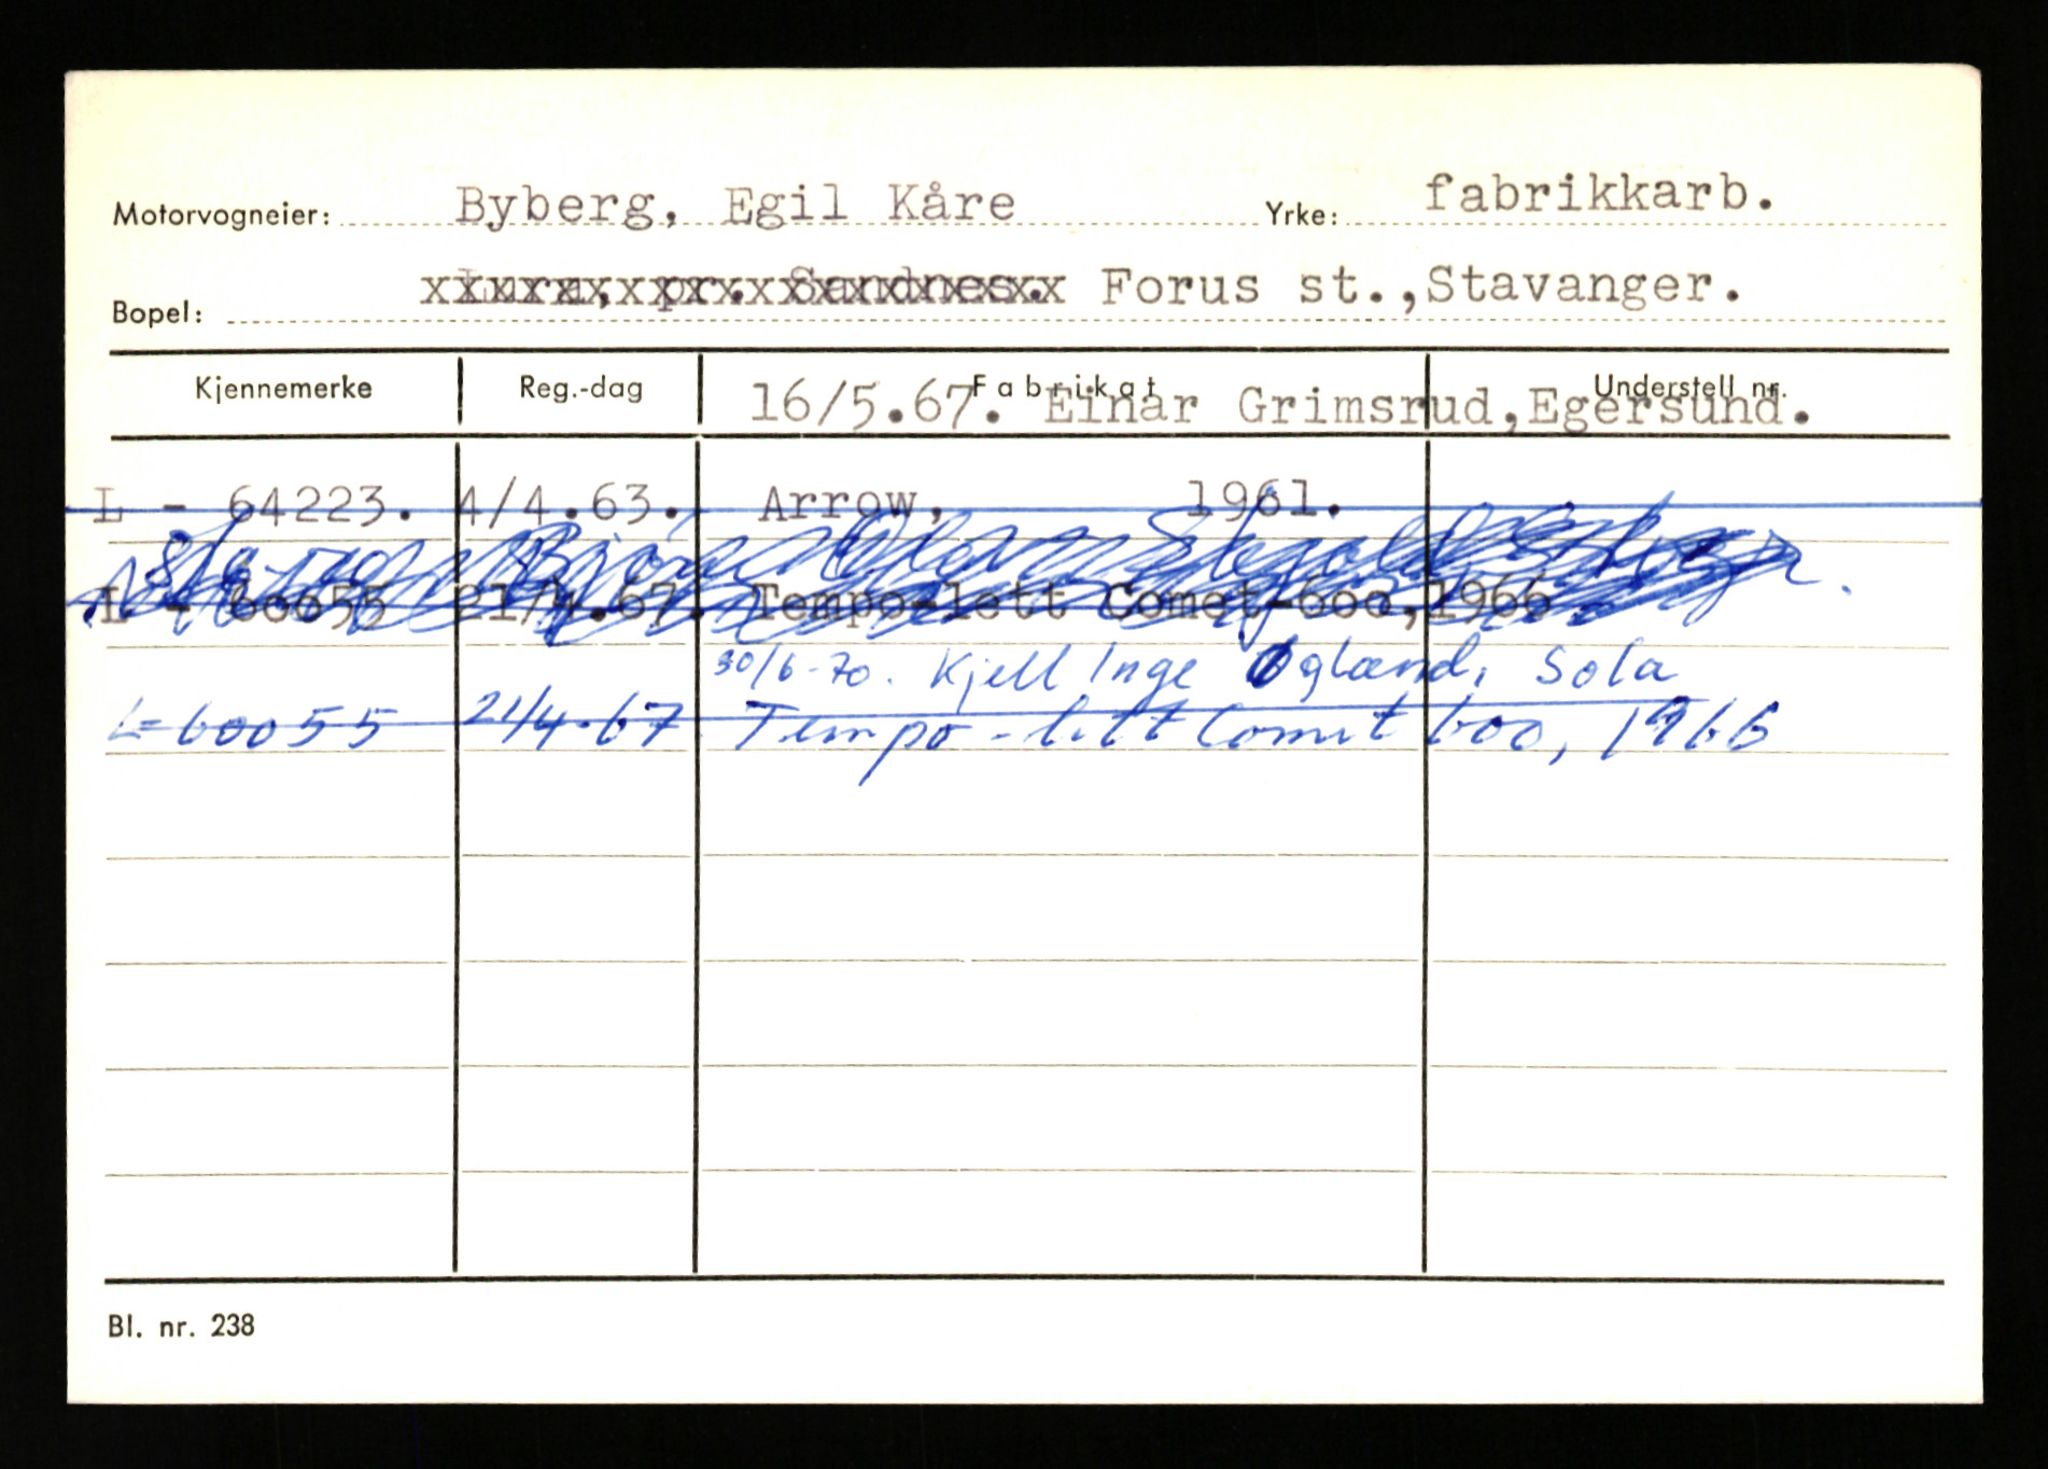 Motorvogneier: Byberg, Egil Kåre Yrke: fabrikkarb.
Bopel: Lura, pr. Sandnes. Forus st.,Stavanger.
Kjennemerke Reg.-dag Fabrikat Understell nr.
16/5.67. Einar Grimsrud,Egersund.
L - 64223. 4/4.63. Arrow, 1961.
Bjørn
L - 60055 21/4.67. Tempo-lett Comet-600,1966.
30/6-70. Kjell Inge Øgland, Sola
L-60055 21/4.67 Tempo-lett Comet 600, 1966
Bl. nr. 238